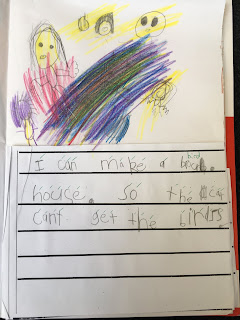 I can make a bird.
houce. So the cat
cant get the birds.